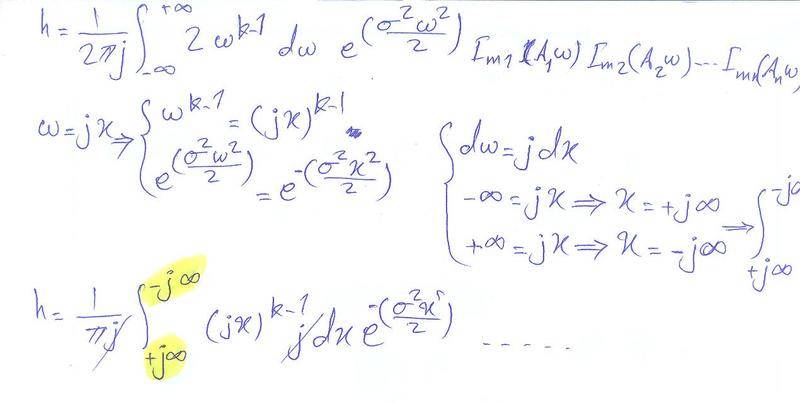 h = 1/2πj ∫_{-∞}^{+∞} 2ω^{k-1} dω e^{(σ²ω²/2)} I_{m1}(A₁ω) I_{m2}(A₂ω) ---- I_{mn}(Aₙω
ω = jx ⇒ { ω^{k-1} = (jx)^{k-1}
e^{(σ²ω²/2)} = e^{-(σ²x²/2)}
{ dω = j dx
-∞ = jx ⇒ x = +j∞
+∞ = jx ⇒ x = -j∞ ⇒ ∫_{+j∞}^{-j∞}
h = 1/πj ∫_{+j∞}^{-j∞} (jx)^{k-1} j dx e^{-(σ²x²/2)} -----